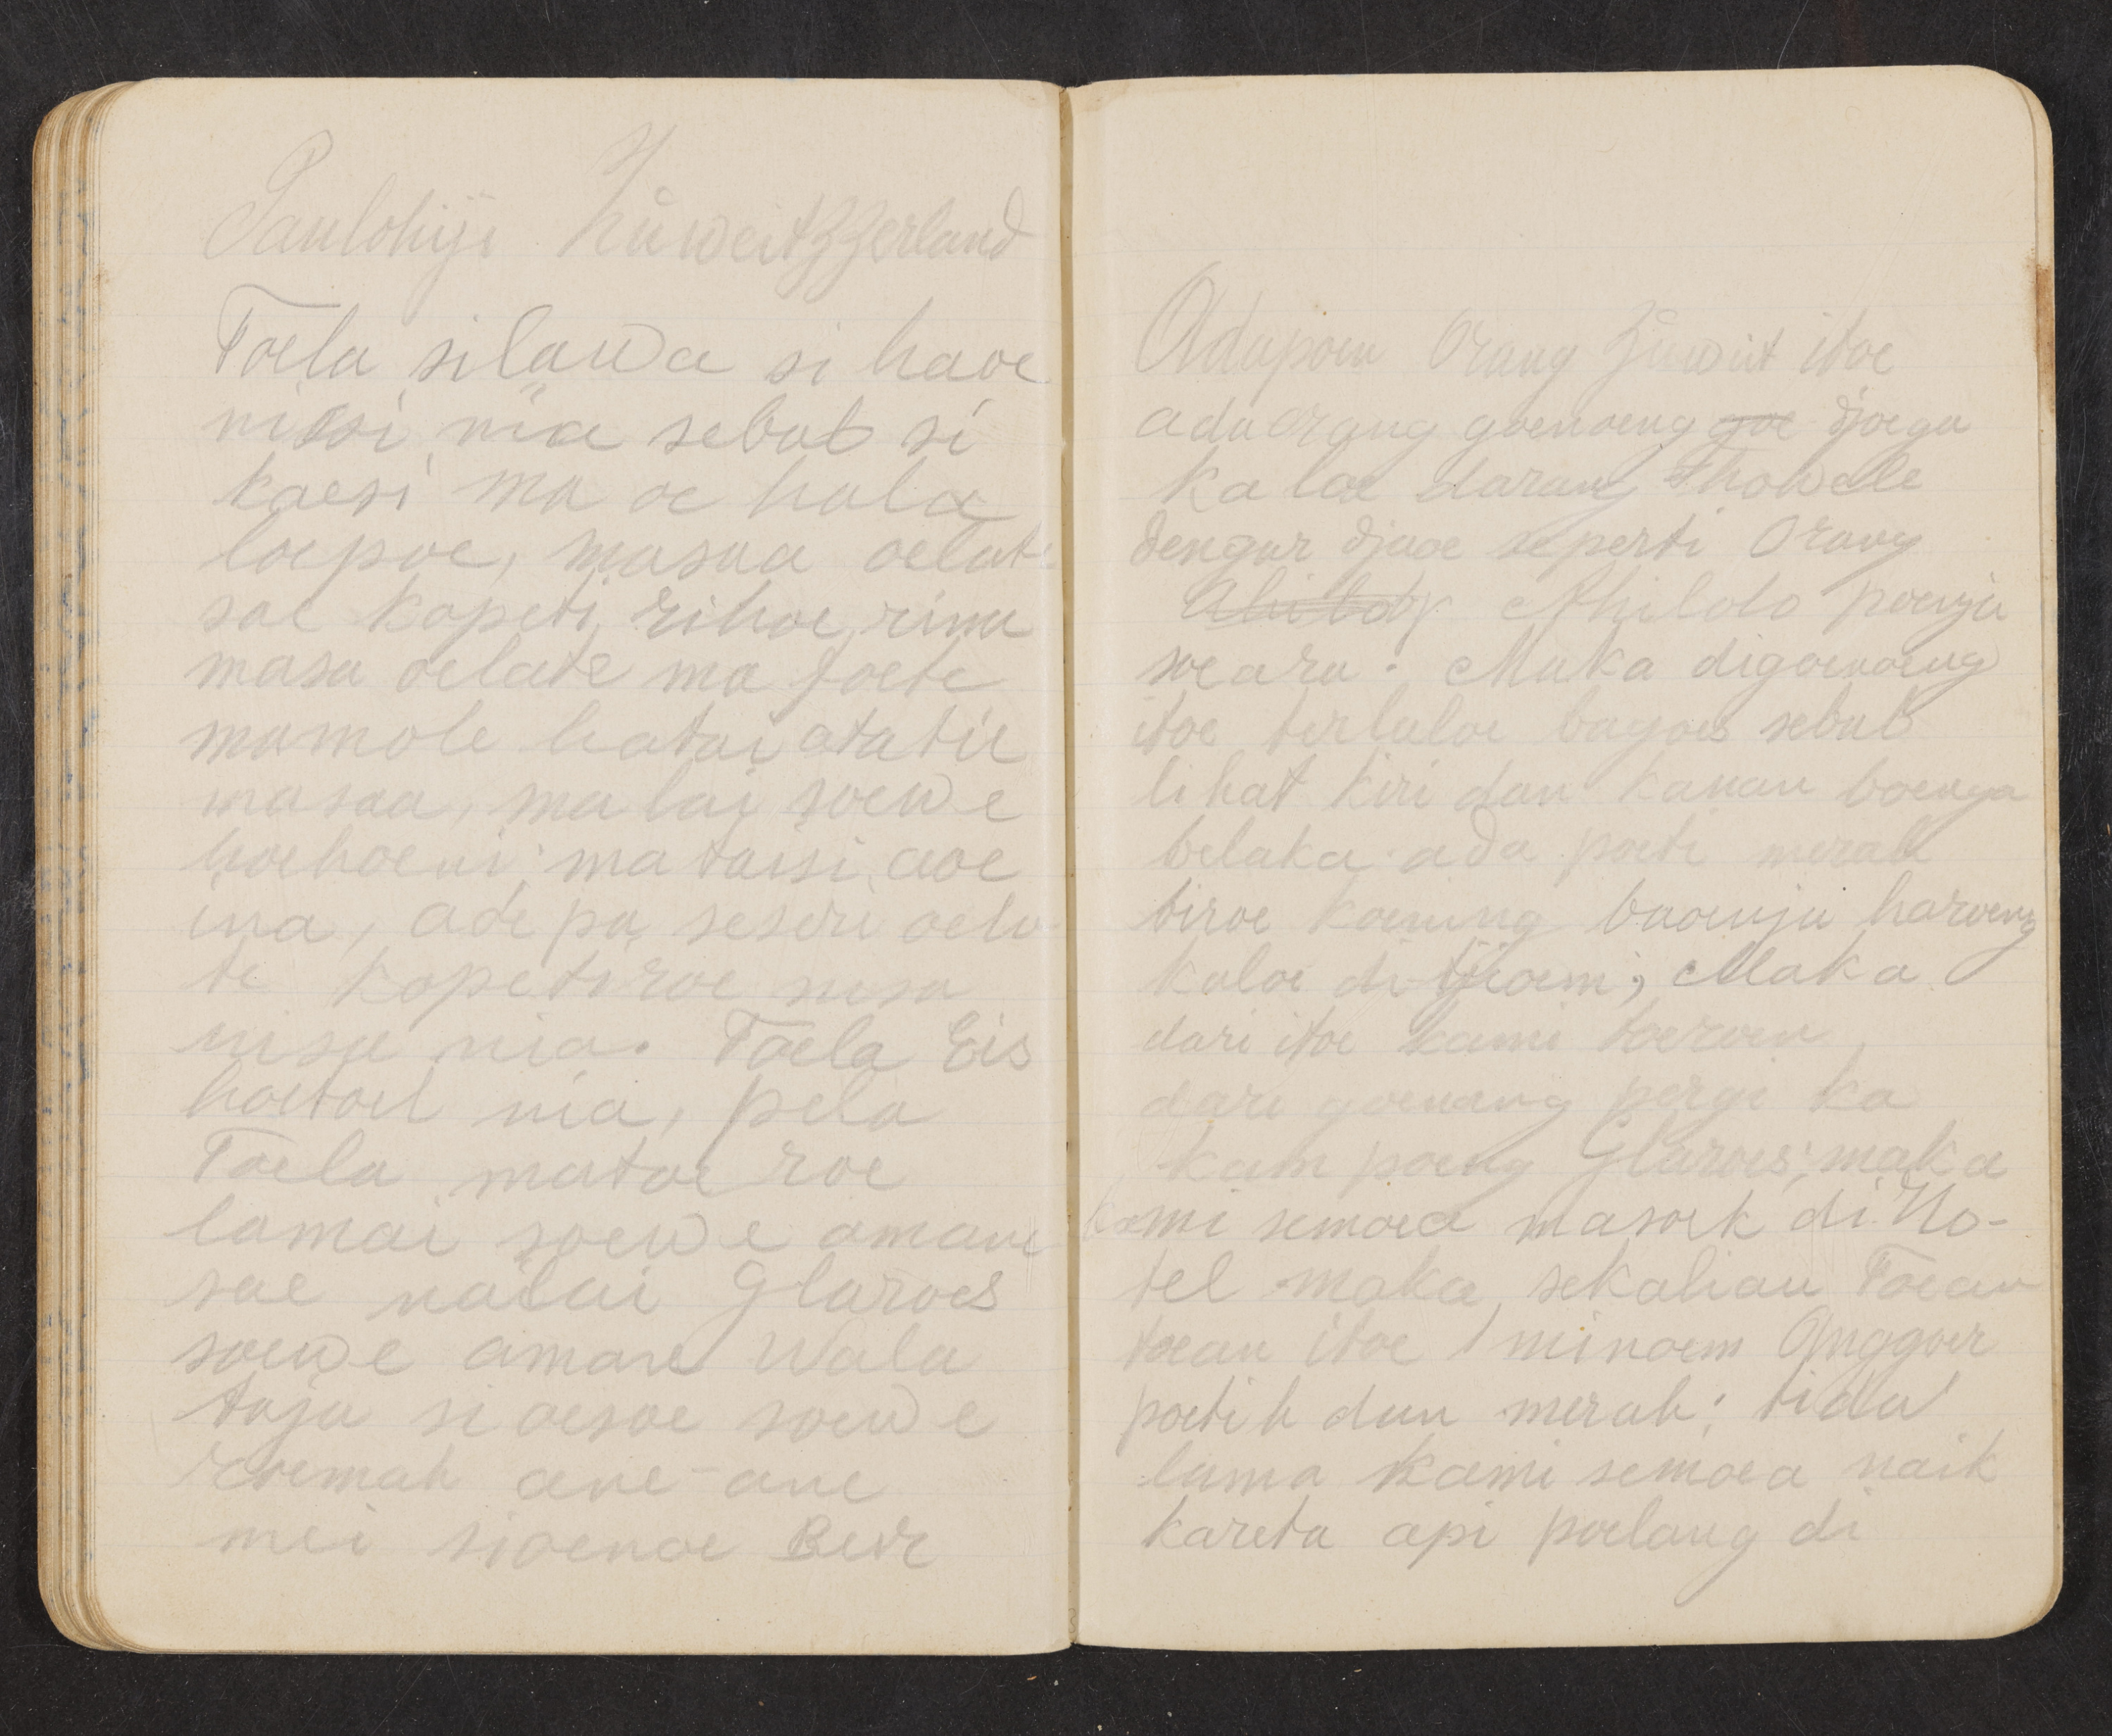 Paulohiji Zuweitzzerland
Toela silawa si haoe
nissi nia sebab si
kaesi ma oe hala
loepoe, masaa oelate
sae kopeti rihoe rima
masa oelate ma foete
mamole hatai atatie
masaa, ma lai soewe
hoehoeni ma taisi aoe
ina, ade pa seseri oela-
te kopeti roe nusa
nusa nia. Toela Eis
hoetoel nia, pela
Toela matae roe
lamai soewe amane
sae nalai Glaroes
soewe amane Wala
taja si oesoe soewe
roemah ane-ane
mei sioenoe Beer
Adapoen Orang Zuweit itoe
ada orang goenoeng goe djoega
ka loe darang Thowele
dengar djaoe seperti Orang
Alifolo poenja
soeara. Maka digoenoeng
itoe terlaloe bagoes sebab
lihat kiri dan kanan boenga
belaka ada poeti merah
biroe koening baoenja haroeng
kaloe di tjioem; Maka
dari itoe kami toeroen
dari goenoeng pergi ka
kampoeng Glaroes; maka
kami semoea masoek di Ho-
tel maka sekalian Toean
toean itoe minoem Anggoer
poetih dan merah; tida
lama kami semoea naik
kareta api poelang di